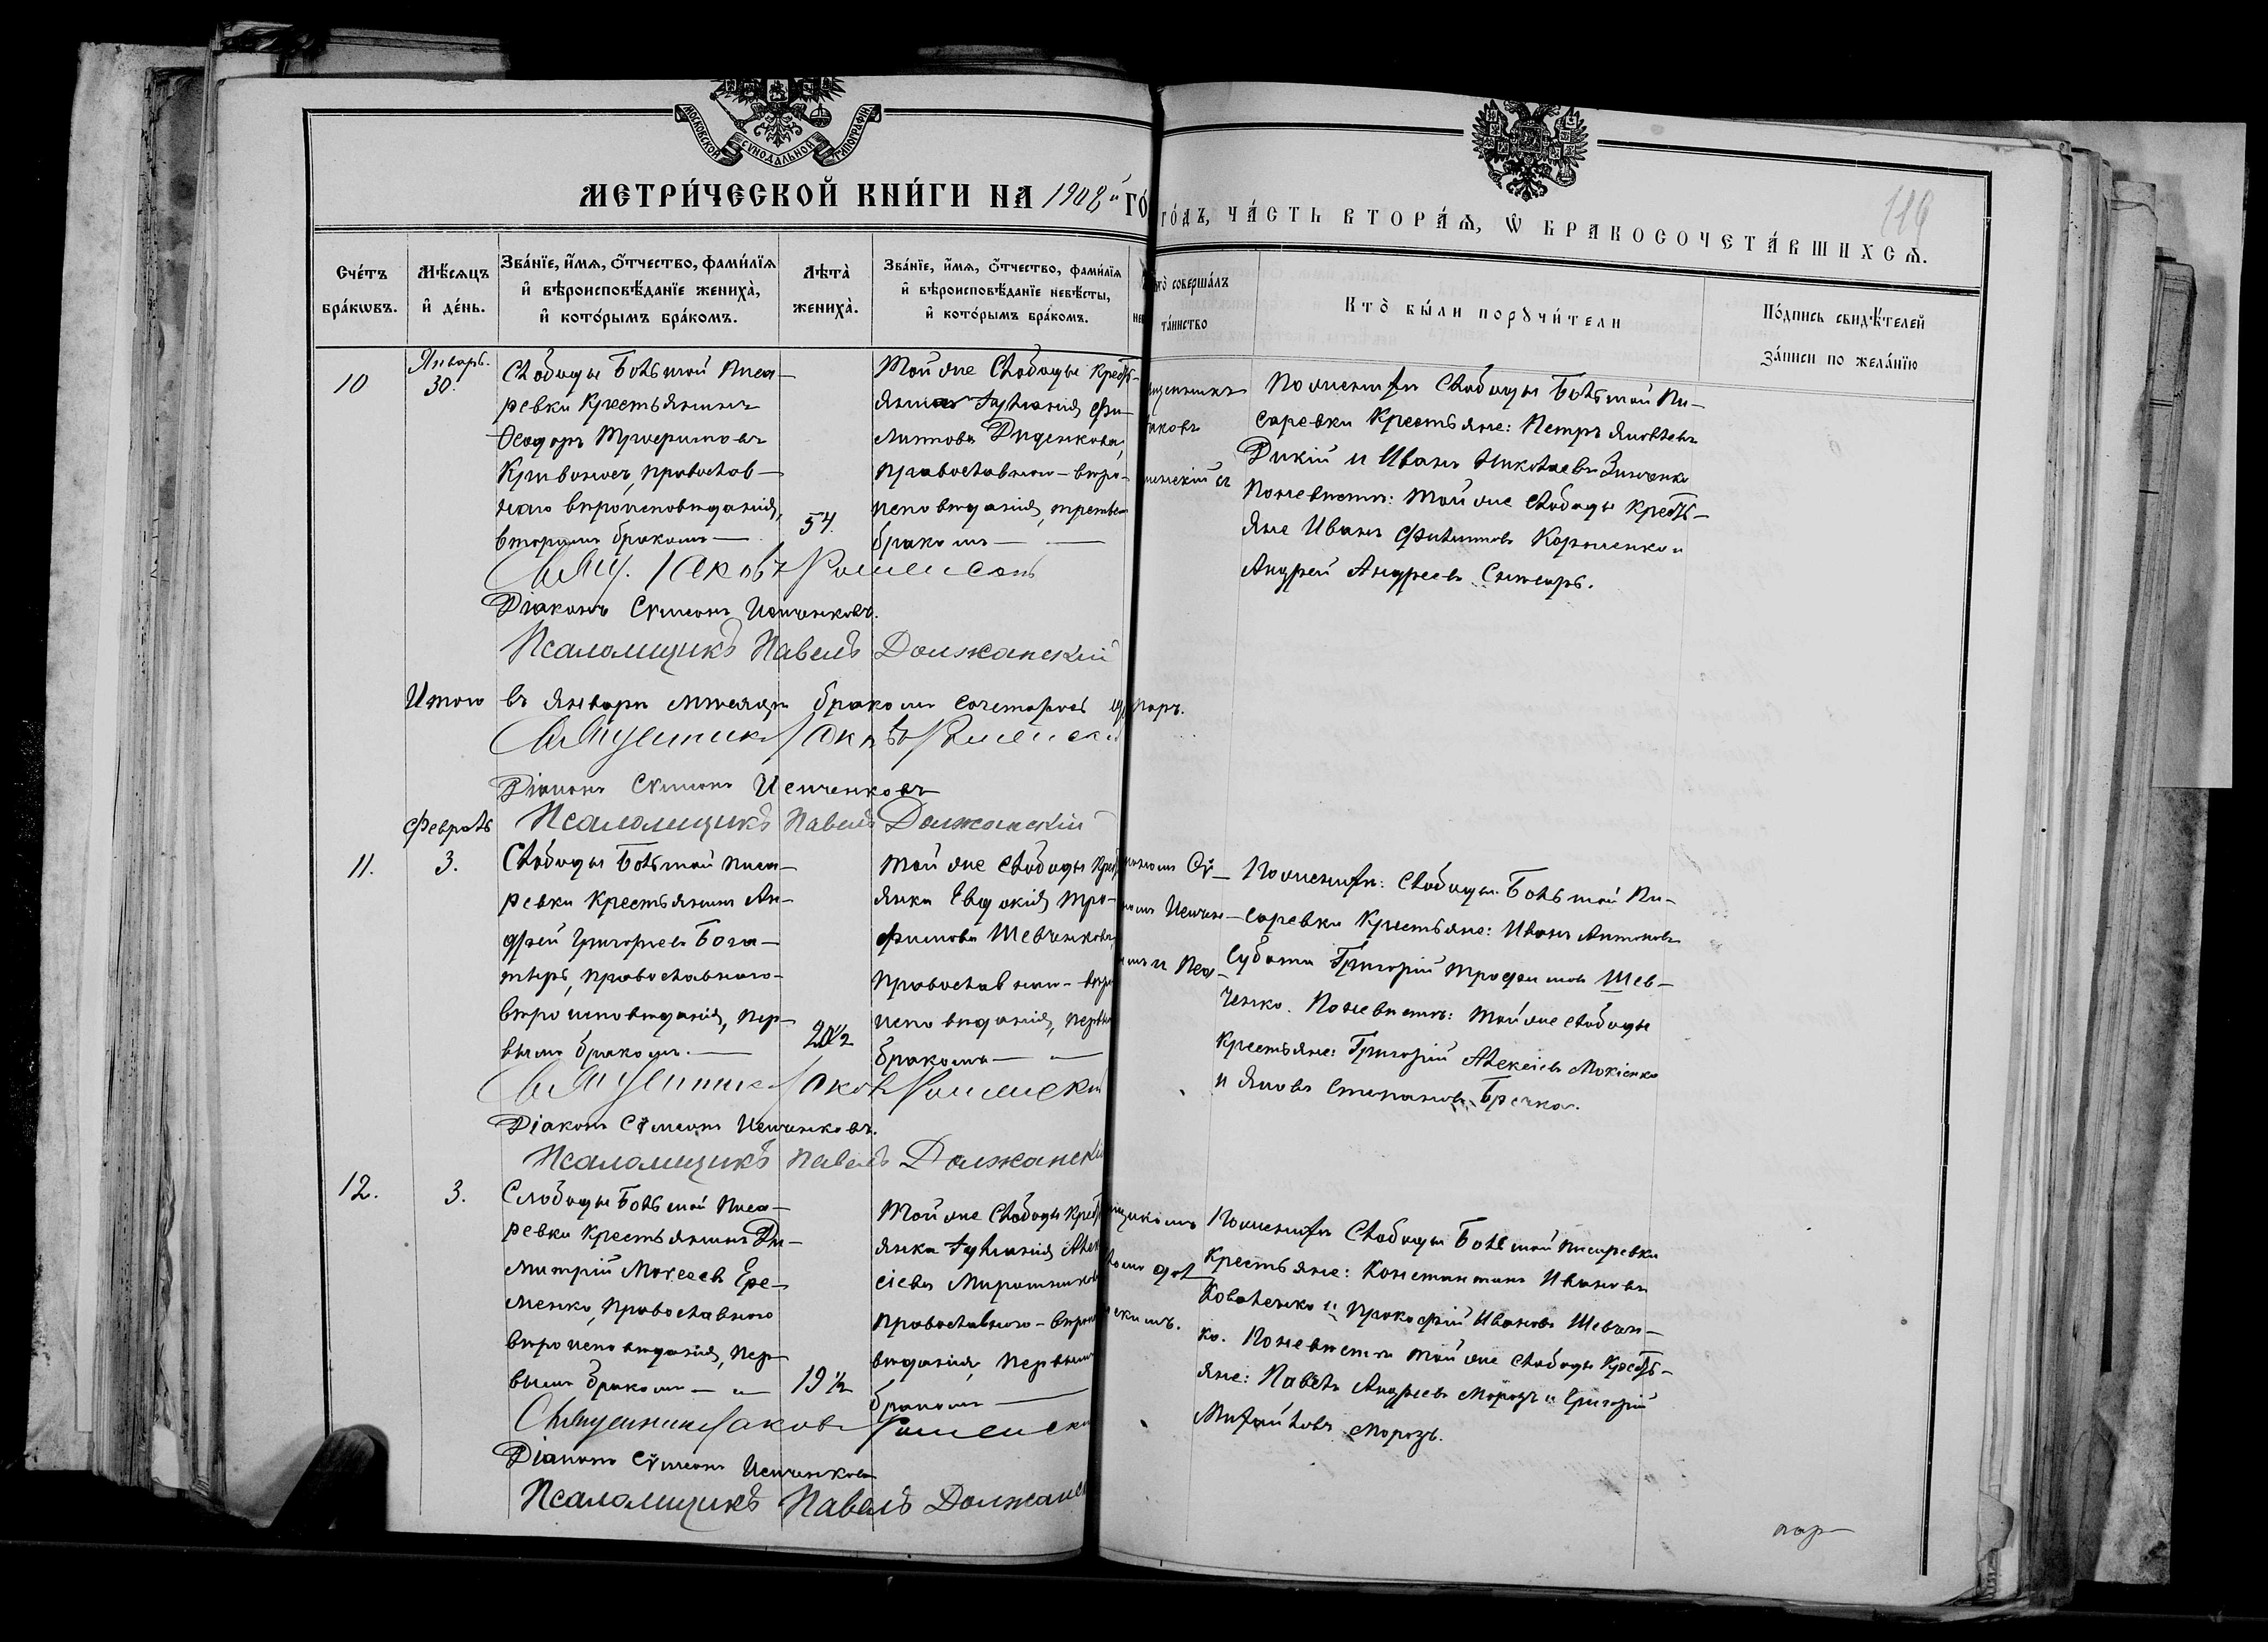 МОСКОВСКОЙ СѴНОДАЛЬНОЙ ТИПОГРАФІИ
МЕТРИ́ЧЕСКОЙ КНИ́ГИ НА 1908й ГО́
ГО́ДЪ, ЧА́СТЬ ВТОРА́Ѧ, Ѡ БРАКОСОЧЕТА́ВШИХСѦ.
119
Сче́тъ бра́кѡвъ.
Мѣ́сѧцъ и҆ де́нь.
Зва́нїе, и҆́мѧ, ѻ҆́тчество, фами́лїѧ и҆ вѣроисповѣ́данїе жениха̀, и҆ кото́рымъ бра́комъ.
Лѣта̀ жениха̀.
Зва́нїе, и҆́мѧ, ѻ҆́тчество, фами́лїѧ и҆ вѣроисповѣ́данїе невѣ́сты, и҆ кото́рымъ бра́комъ.
то̀ соверша́лъ
та́инство
Кто̀ бы́ли порꙋчи́тели
По́дпись свидѣ́телей
за́писи по жела́нїю
10
Январь.
30.
Слободы Большой Писа-
ревки Крестьянинъ
Ѳеодоръ Трифоновъ
Кривоносъ, православ-
наго вѣроисповѣданія,
вторымъ бракомъ
54.
Той же Слободы Кресть-
янка Іуліанія Фи-
липпова Диденкова,
православнаго вѣро-
исповѣданія, третьимъ
бракомъ
По женихѣ Слободы Большой Пи-
саревки Крестьяне: Петръ Яковлевъ
Дикій и Иванъ Николаевъ Зинченко
По невѣстѣ: той же слободы Кресть-
яне Иванъ Филипповъ Корниенко и
Андрей Андреевъ Снитарь.
Свящ. Іаковъ
Діаконъ Сѵмеонъ Исиченковъ.
Псаломщикъ Павелъ Должанскій
Итого въ Январѣ мѣсяцѣ бракомъ сочеталось паръ.
Священникъ Іаковъ
Діаконъ Сѵмеонъ Исиченковъ
Псаломщикъ Павелъ Должанскій
Февраль
11.
3.
Слободы Большой Писа-
ревки Крестьянинъ Ан-
дрей Григорьевъ Бога-
тырь, православнаго
вѣроисповѣданія, пер-
вымъ бракомъ.
Той же Слободы Крест
янка Евдокія Тро-
фимова Шевченкова,
православнаго вѣро
исповѣданія, первым
бракомъ
По женихѣ: Слободы Большой Пи-
саревки Крестьяне: Иванъ Антоновъ
Субота Григорій Трофимовъ Шев-
ченко. По невѣстѣ: той же слободы
Крестьяне: Григорій Алексіевъ Мокіенко
и Яковъ Степановъ Бречка.
Священникъ Іаковъ
Діаконъ Сѵмеонъ Исиченковъ.
Псаломщикъ Павелъ Должанскій
12.
3.
Слободы Большой Писа-
ревки Крестьянинъ Ди-
митрій Моѵсеевъ Ере-
менко, православнаго
вѣроисповѣданія, пер-
вымъ бракомъ
19 1/2
Той же Слободы Крест
янка Іуліанія Алек
сіева Мирошникова
православнаго вѣроис
вѣданія, первымъ
бракомъ
По женихѣ Слободы Большой Писаревки
Крестьяне: Константинъ Ивановъ
Коваленко и Прокофій Ивановъ Шевчен-
ко. По невѣстѣ той же слободы Кресть-
яне: Павелъ Андреевъ Морозъ и Григорій
Михайловъ Морозъ.
Священникъ Іаковъ
Діаконъ Сѵмеонъ Исиченковъ
Псаломщикъ Павелъ Должанск